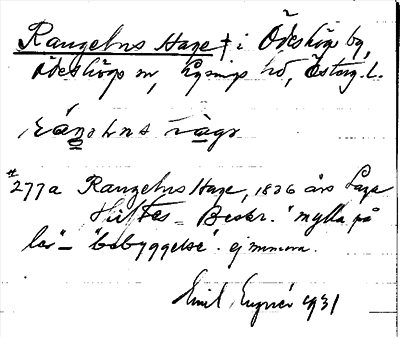 Rangelns Hage † i Ödeshögs by,
Ödeshögs sn, Lysings hd, Österg. L.
rángəlns
277a Rangelns Hage, 1826 års Laga
Skiftes - Beskr. "mylla på
ler" - "bebyggelse". ej minnen.
Emil 1931